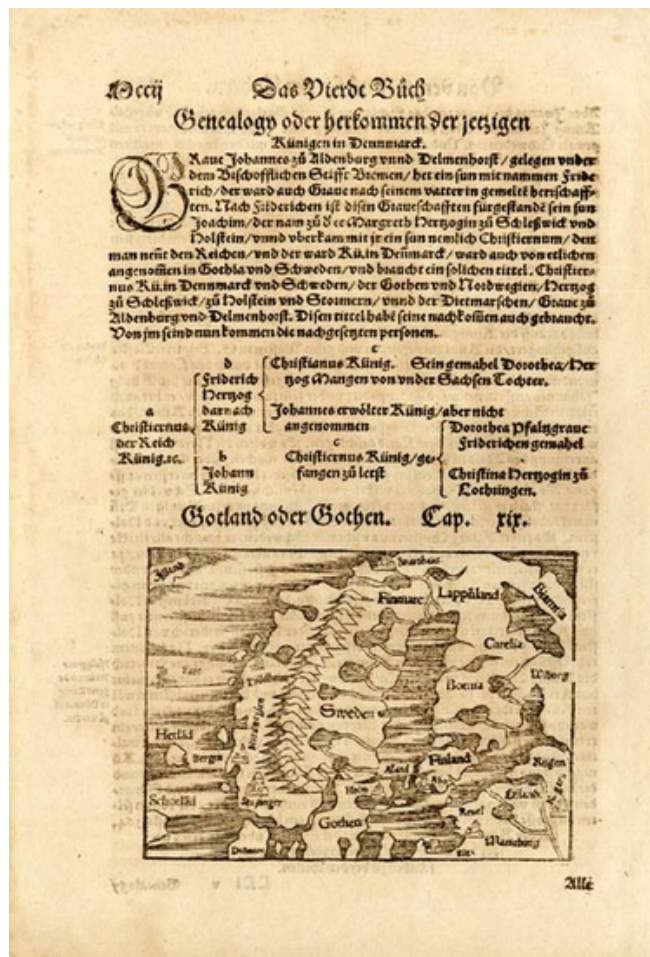 Mccij Das Vierdt Bůch
Genealogy oder herkommen der jetzigen
Künigen in Dennmarck.
GRaue Johannes zů Aldenburg vnnd Delmenhorst/ gelegen vnder
dem Bischofflichen Stifft Bremen/ het ein sun mit nammen Fride
rich/ der ward auch Graue nach seinem vatter in gemelte herrschaff-
ten. Nach Friderichen ist disen Graueschafften fürgestandē sein sun
Joachim/ der nam zů Margreth Hertzogin zů Schleßwick vnd
Holstein/ vnnd vberkam mit jr ein sun nemlich Christiernum/ den
man neñt den Reichen/ vnd der ward Kü. in Deñmarck/ ward auch von etlichen
angenom̄en in Gothia vnd Schweden/ vnd braucht ein solichen tittel. Christier-
nus Kü. in Dennmarck vnd Schweden/ der Gothen vnd Nordwegien/ Hertzog
zů Schleßwick/ zů Holstein vnd Stormern/ vnnd der Dietmarschen/ Graue zů
Aldenburg vnd Delmenhorst. Disen tittel habē seine nachkom̄en auch gebraucht.
Von jm seind nun kommen die nachgesetzten personen.
a
Christiernus
der Reich
Künig.ꝛc.
d
Friderich
Hertzog
darnach
Künig
b
Johann
Künig
e
Christianus Künig. Sein gemahel Dorothea/ Her
tzog Mangen von vnder Sachsen Tochter.
Johannes erwölter Künig/ aber nicht
angenommen
c
Christiernus Künig/ ge-
fangen zů letst
Dorothea Pfaltzgraue
Friderichen gemahel
Christina Hertzogin zů
Lothringen.
Gotland oder Gothen. Cap. xix.
Island
Finmarc
Lappēland
Carelia
Wiburg
Bornia
Sweden
Nordwegien
Hetlād
Bergen
Finland
Aland
Schotlād
Stafanger
Holm
Gothen
Revel
Alle